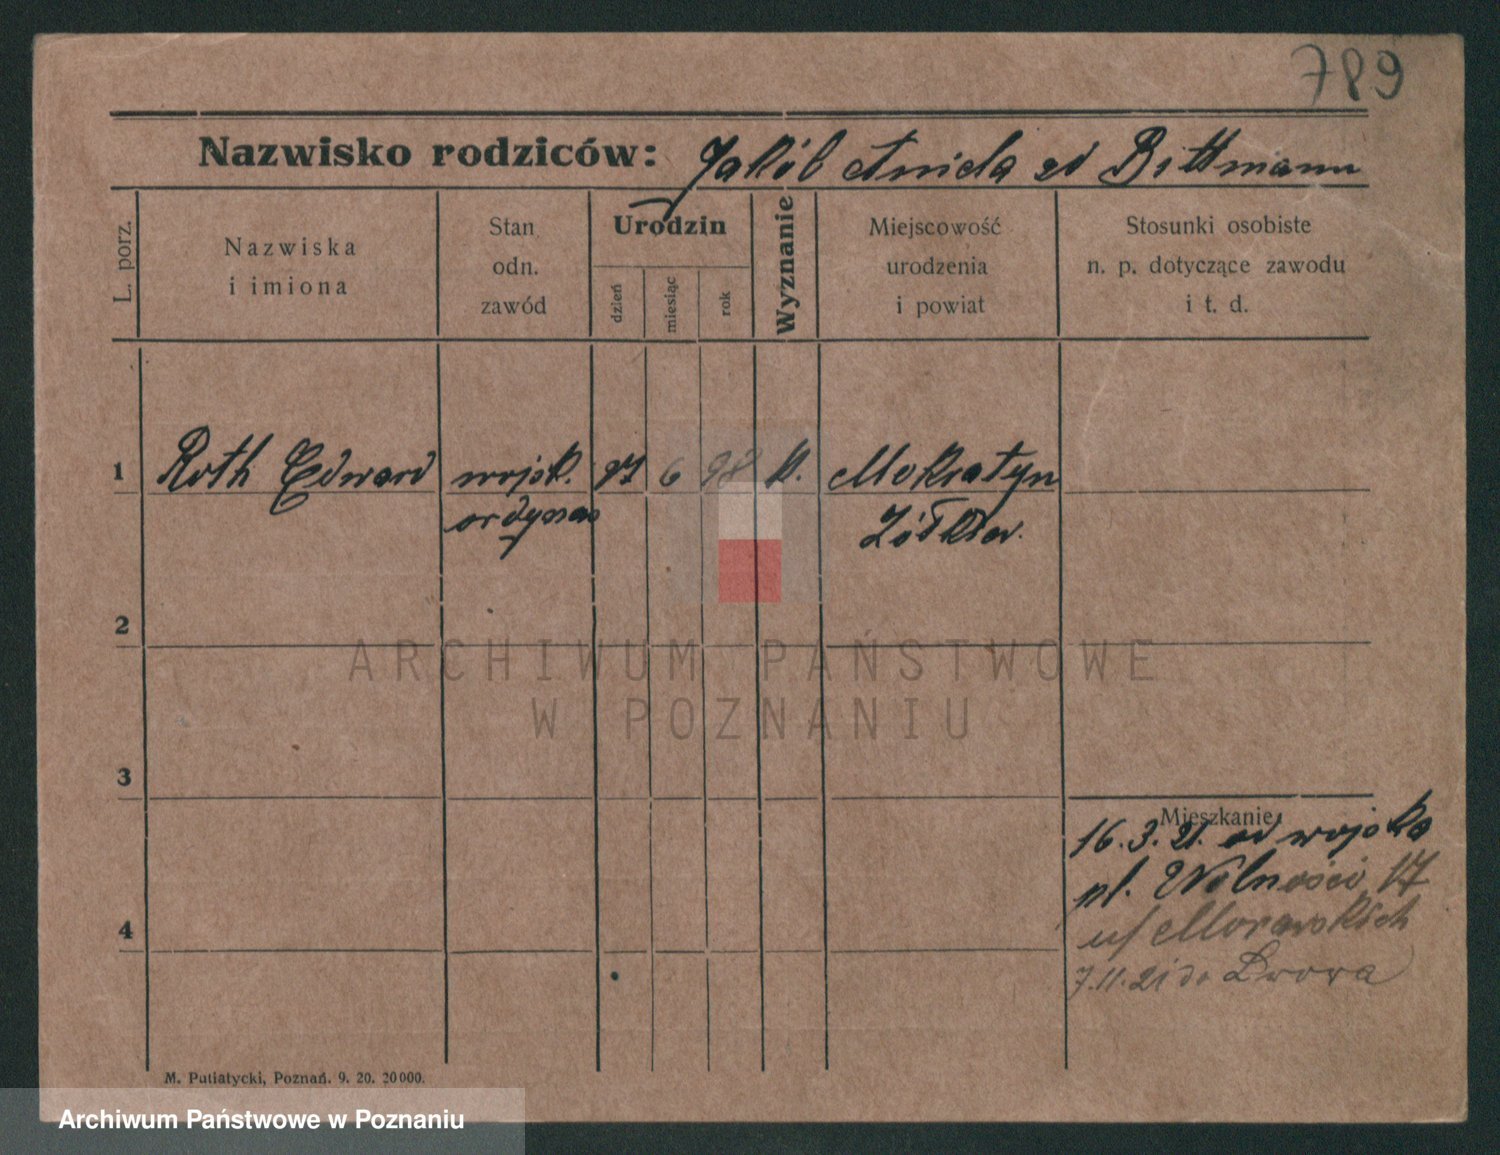 789
Nazwisko rodziców: Jakób Aniela zd Bittmann
L. porz.
Nazwiska
i imiona
Stan
odn.
zawód
Urodzin
dzień
miesiąc
rok
Wyznanie
Miejscowość
urodzenia
i powiat
Stosunki osobiste
n. p. dotyczące zawodu
i t. d.
1 Roth Edward wojsk. 27 6 98 k. Mokratyn
ordynans Żółkiew.
2
ARCHIWUM PAŃSTWOWE
W POZNANIU
3
Mieszkanie:
16.3.21. od wojska
pl. Wolności 17
u/ Morawskich
4
7.11.21 do Lwowa
M. Putiatycki, Poznań. 9. 20. 20000.
Archiwum Państwowe w Poznaniu